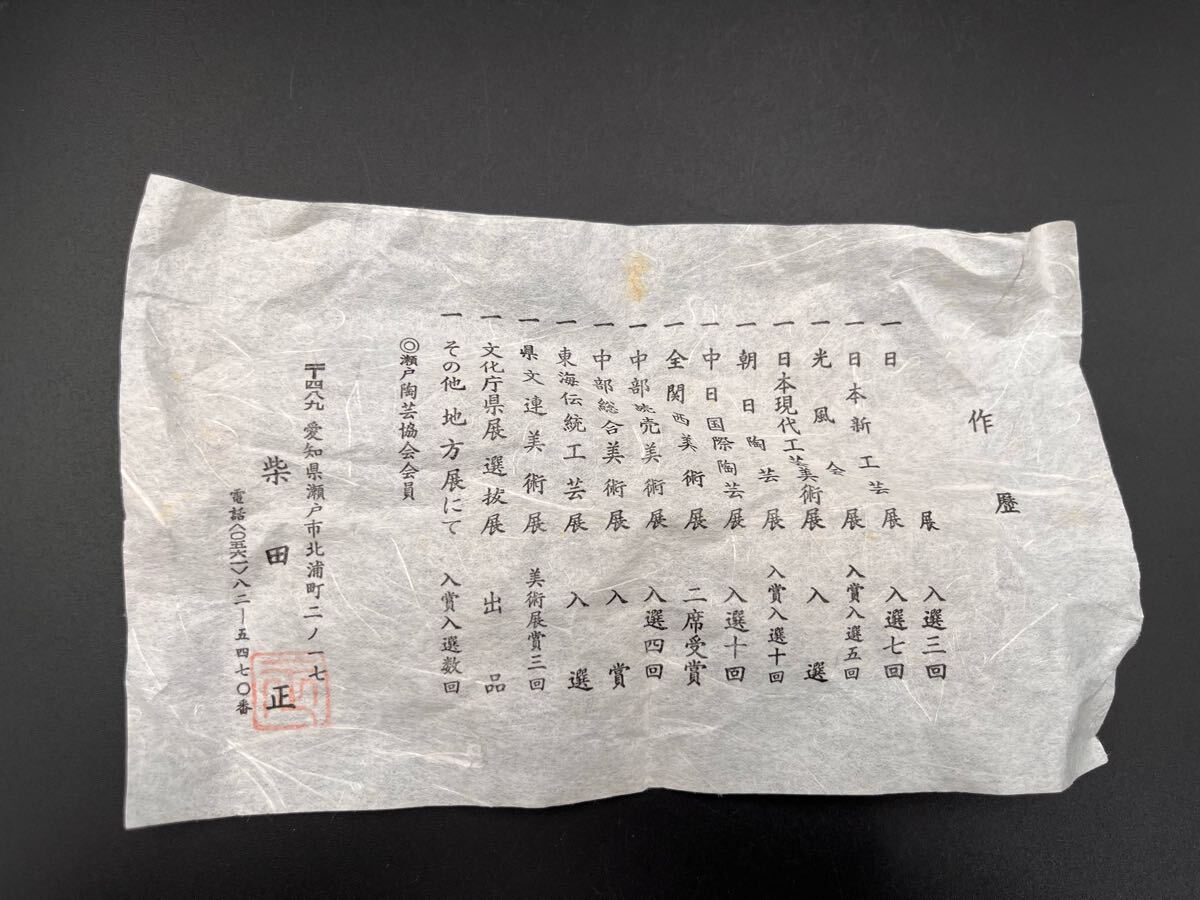 作歴
一日展 入選三回
一日本新工芸展 入選七回
一光風会展 入賞入選五回
一日本現代工芸美術展 入選
一朝日陶芸展 入賞入選十回
一中日国際陶芸展 入選十回
一全関西美術展 二席受賞
一中部読売美術展 入選四回
一中部総合美術展 入賞
一東海伝統工芸展 入選
一県文連美術展 美術展賞三回
一文化庁県展選抜展 出品
一その他地方展にて 入賞入選数回
◎瀬戸陶芸協会会員
〒四八九 愛知県瀬戸市北浦町二ノ一七
柴田正
電話〈〇五六一〉八二―五四七〇番